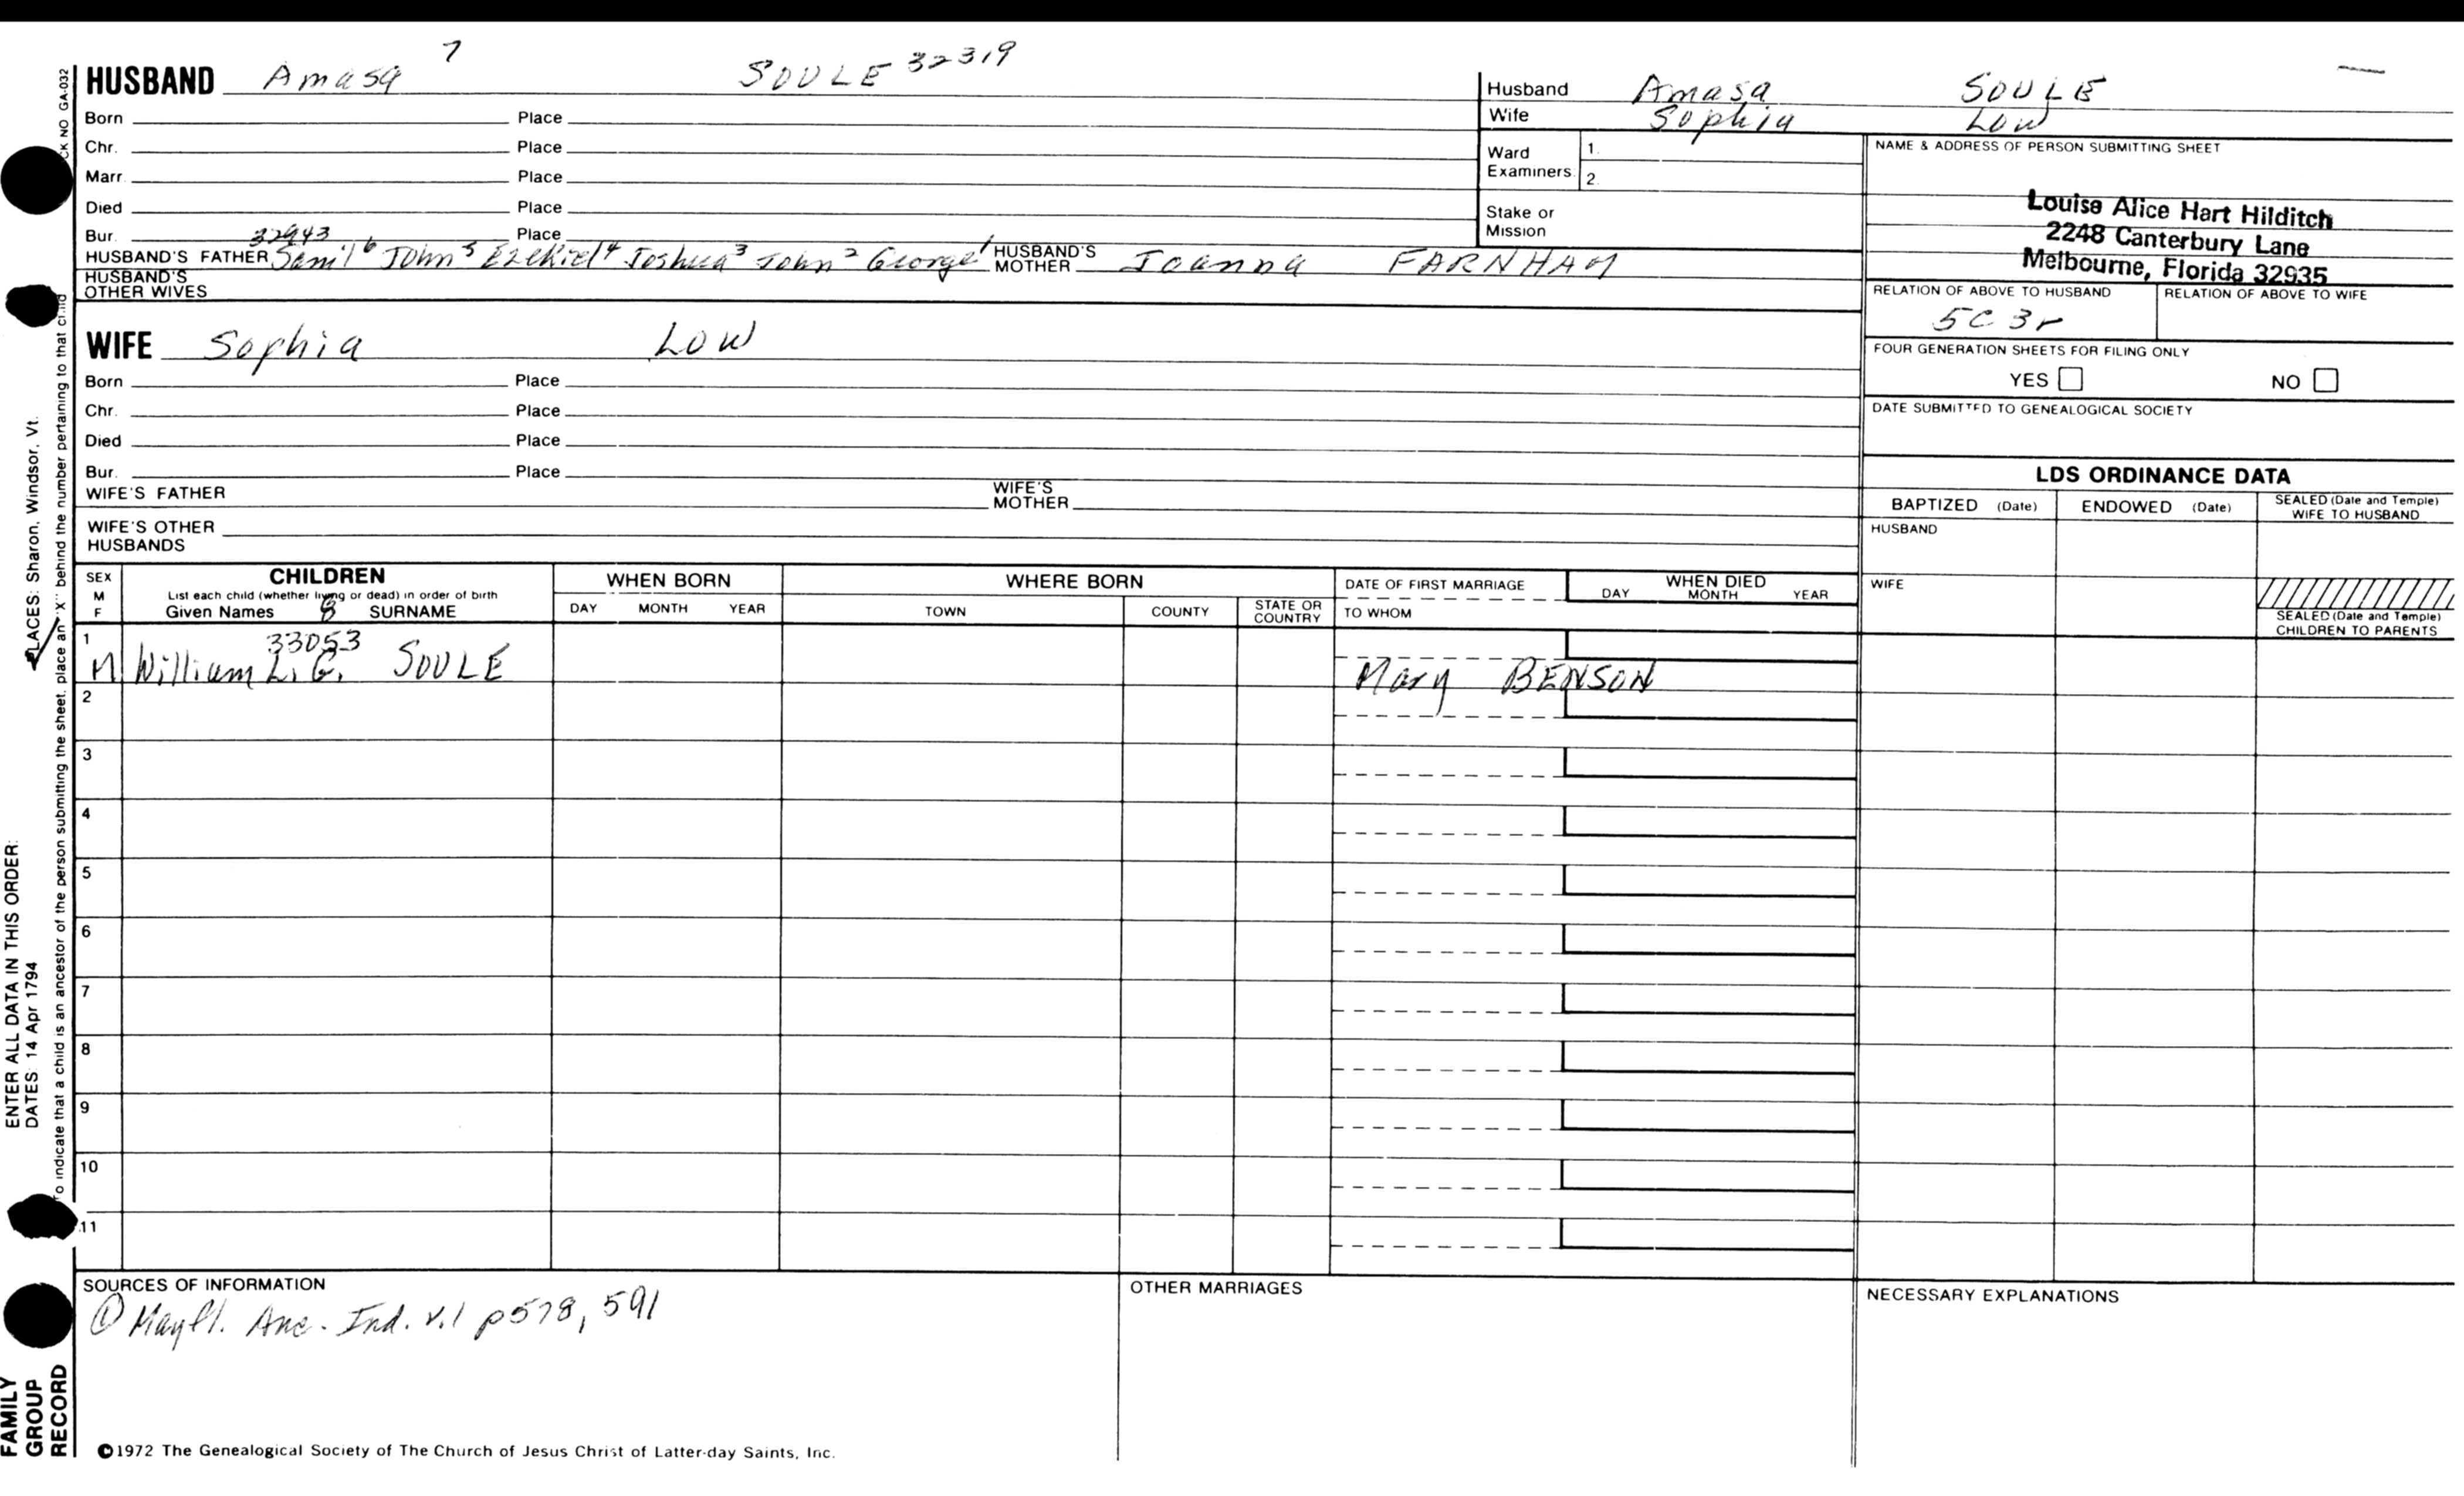 HUSBAND Amasa 7 SOULE 32319
Born Place
Chr. Place
Marr. Place
Died Place
Bur. Place
32943
HUSBAND'S FATHER Saml 6 John 5 Ezekiel 4 Joshua 3 John 2 George 1 HUSBAND'S MOTHER Joanna FARNHAM
HUSBAND'S OTHER WIVES
Husband Amasa SOULE
Wife Sophia Low
Ward Examiners 1.
2.
Stake or Mission
NAME & ADDRESS OF PERSON SUBMITTING SHEET
Louise Alice Hart Hilditch
2248 Canterbury Lane
Melbourne, Florida 32935
RELATION OF ABOVE TO HUSBAND RELATION OF ABOVE TO WIFE
5C 3r
FOUR GENERATION SHEETS FOR FILING ONLY
YES NO
DATE SUBMITTED TO GENEALOGICAL SOCIETY
WIFE Sophia LOW
Born Place
Chr. Place
Died Place
Bur. Place
WIFE'S FATHER WIFE'S MOTHER
WIFE'S OTHER HUSBANDS
LDS ORDINANCE DATA
BAPTIZED (Date) ENDOWED (Date) SEALED (Date and Temple) WIFE TO HUSBAND
HUSBAND
WIFE
SEALED (Date and Temple) CHILDREN TO PARENTS
SEX M F
CHILDREN
List each child (whether living or dead) in order of birth
Given Names 8 SURNAME
WHEN BORN
DAY MONTH YEAR
WHERE BORN
TOWN COUNTY STATE OR COUNTRY
DATE OF FIRST MARRIAGE
TO WHOM
WHEN DIED
DAY MONTH YEAR
1
33053
M William L. G. SOULE Mary BENSON
2
3
4
5
6
7
8
9
10
11
SOURCES OF INFORMATION
① Mayfl. Anc. Ind. v.1 p578, 591
OTHER MARRIAGES
NECESSARY EXPLANATIONS
©1972 The Genealogical Society of The Church of Jesus Christ of Latter-day Saints, Inc.
FAMILY
GROUP
RECORD
ENTER ALL DATA IN THIS ORDER:
DATES: 14 Apr 1794
PLACES: Sharon, Windsor, Vt.
To indicate that a child is an ancestor of the person submitting the sheet, place an "X" behind the number pertaining to that child
CK NO GA-032